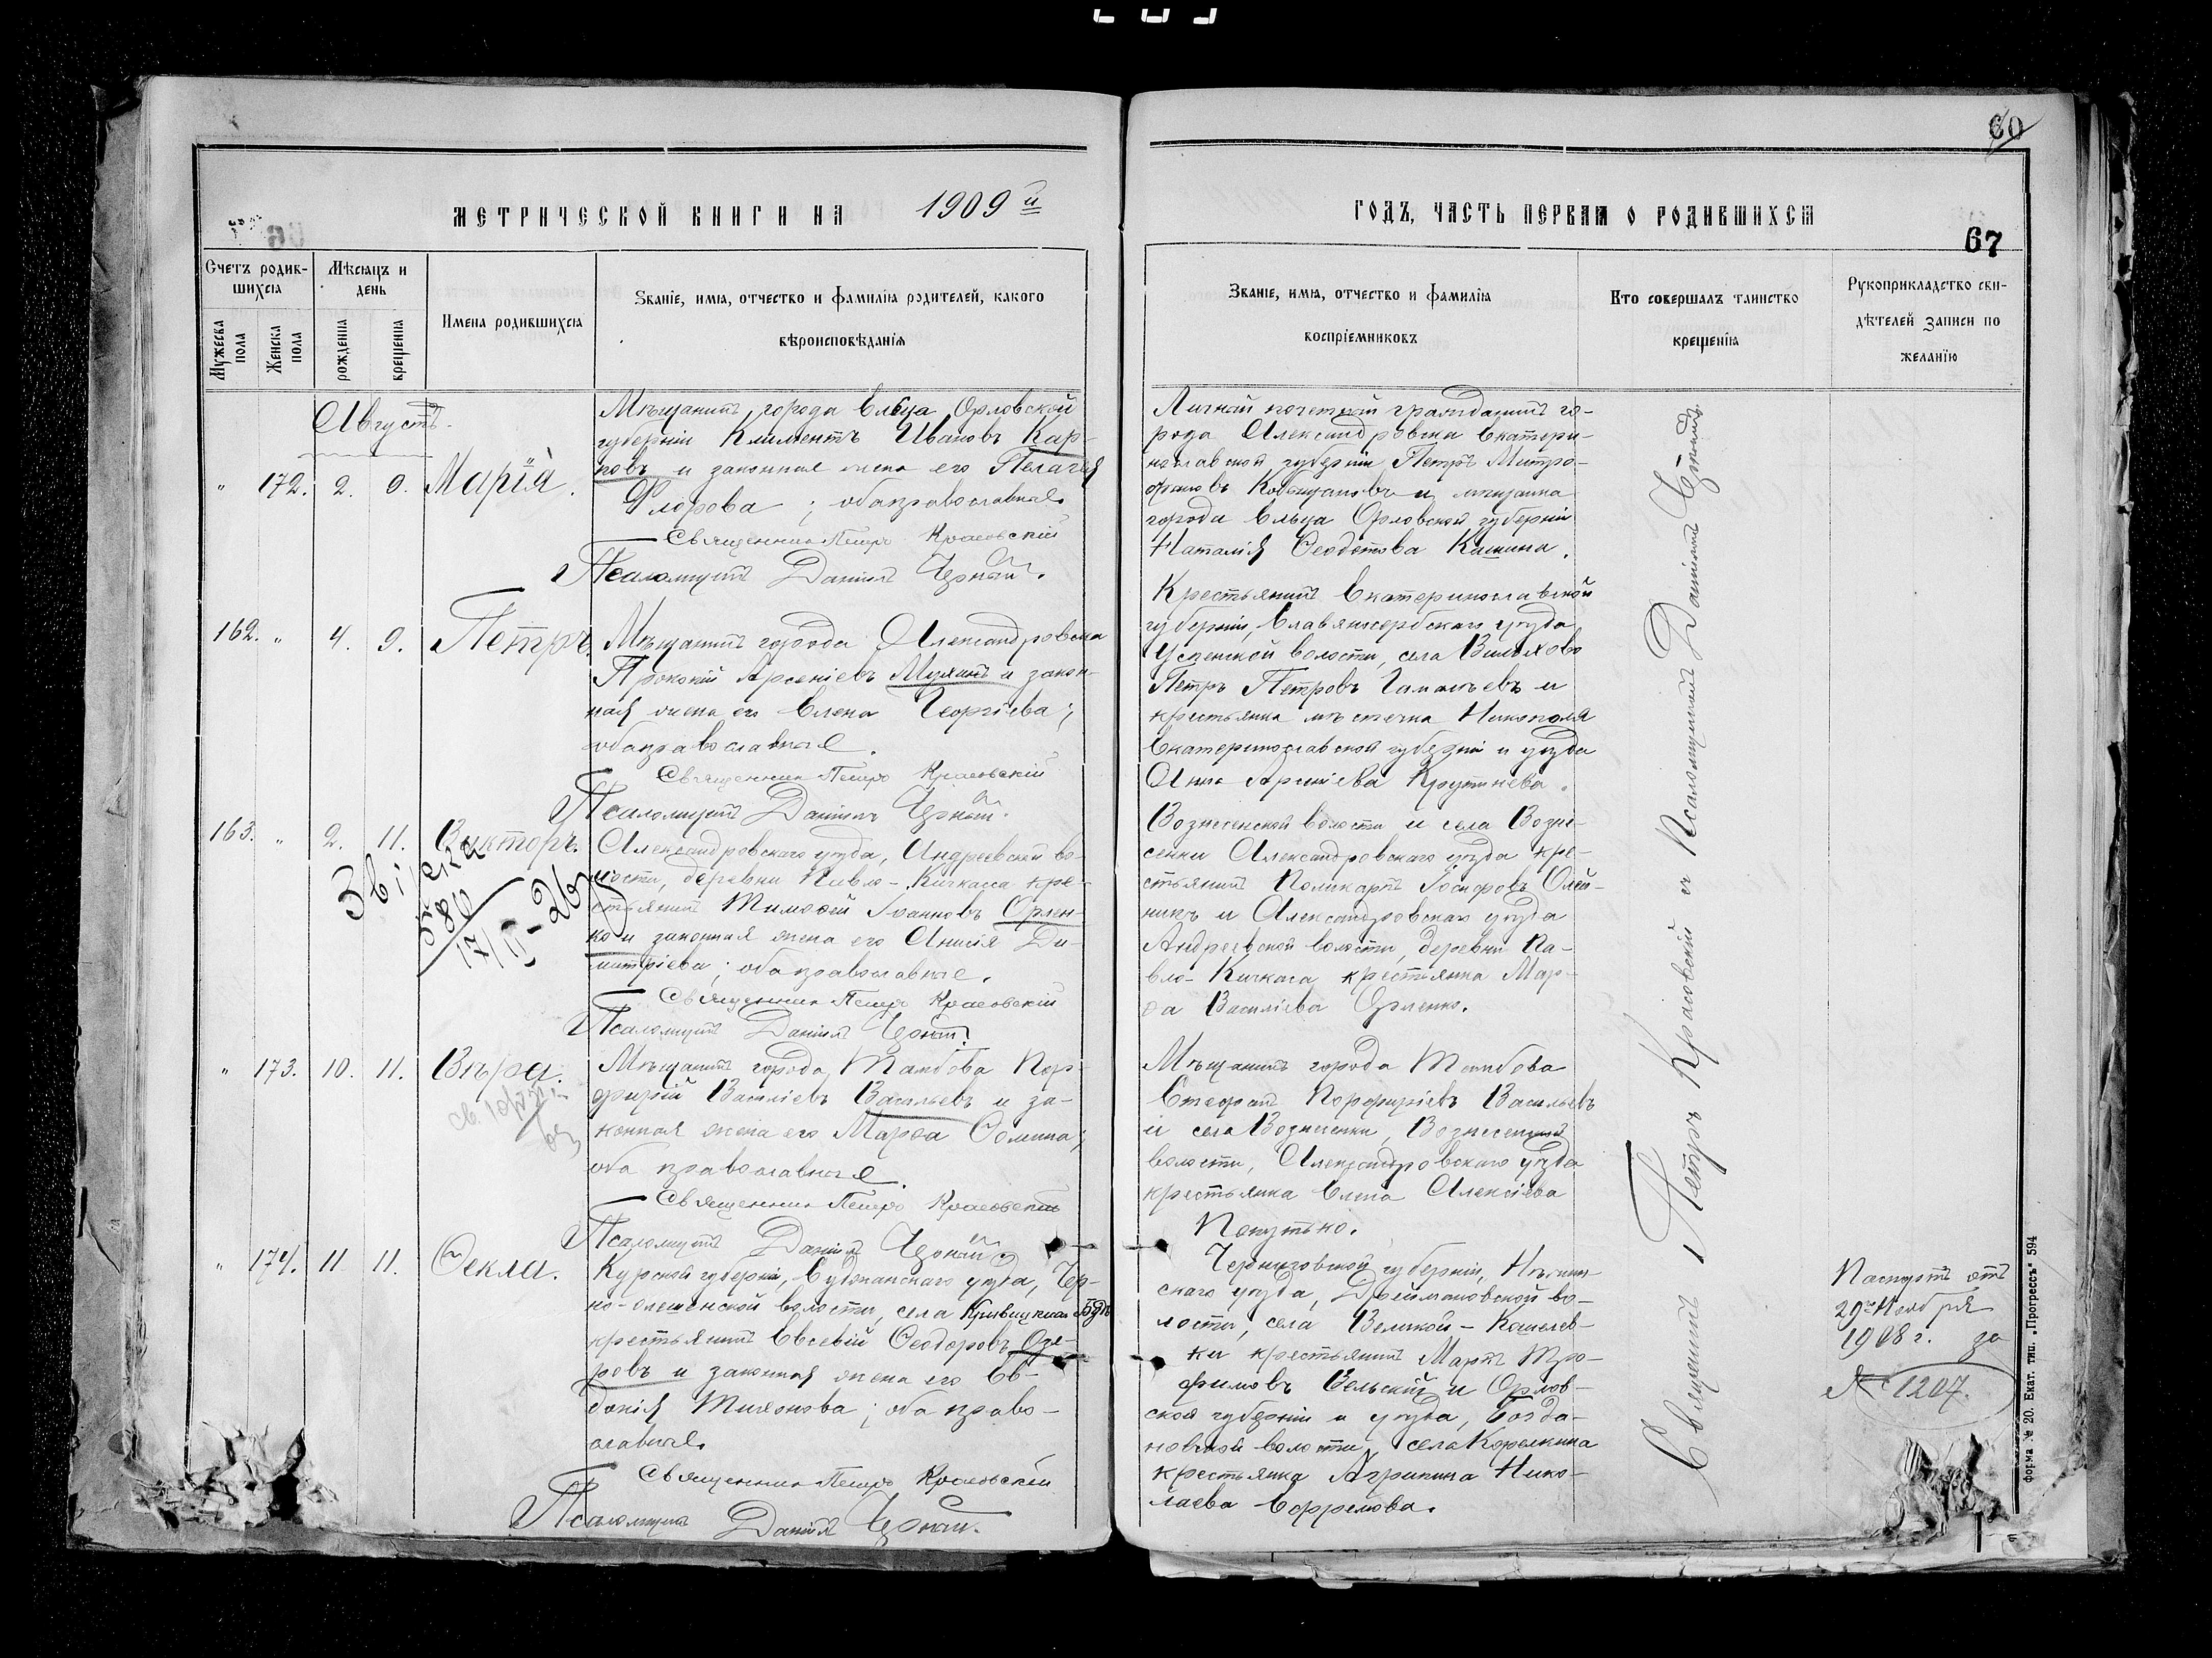 60
МЕТРИЧЕСКОЙ КНИГИ НА 1909 й
ГОДЪ, ЧАСТЬ ПЕРВАЯ О РОДИВШИХСЯ
67
Счетъ родившихся
Мужеска пола
Женска пола
Мѣсяцъ и день
рожденія
крещенія
Имена родившихся
Званіе, имя, отчество и фамилія родителей, какого
вѣроисповѣданія
Званіе, имя, отчество и фамилія
воспріемниковъ
Кто совершалъ таинство
крещенія
Рукоприкладство сви-
дѣтелей записи по
желанію
Августъ.
" 172. 2. 9. Марія.
Мѣщанинъ города Ельца Орловской
губерніи Климентъ Ивановъ Кар-
повъ и законная жена его Пелагія
Флорова; оба православные.
Священникъ Петръ Красовскій
Псаломщикъ Даніилъ Чорный.
Личный почетный гражданинъ го-
рода Александровска Екатери-
нославской губерніи Петръ Митро-
фановъ и мѣщанка
города Ельца Орловской губерніи
Наталія Ѳеодотова Кашина.
162. " 4. 9. Петръ.
Мѣщанинъ города Александровска
Прокопій Арсеніевъ и закон-
ная жена его Елена Георгіева;
оба православные.
Священникъ Петръ Красовскій
Псаломщикъ Даніилъ Чорный.
Крестьянинъ Екатеринославской
губерніи, Славяносербскаго уѣзда,
Успенской волости, села
Петръ Петровъ и
крестьянка мѣстечка Никополя
Екатеринославской губерніи и уѣзда
Анна Арсеніева
163. " 2. 11. Викторъ.
580
17/II-26
Александровскаго уѣзда, Андреевской во-
лости, деревни Павло-Кичкаса кре-
стьянинъ Тимоѳей Іоанновъ Орлен-
ко и законная жена его Анисія Ди-
митріева; оба православные.
Священникъ Петръ Красовскій
Псаломщикъ Даніилъ Чорный.
Вознесенской волости и села Возне-
сенки Александровскаго уѣзда кре-
стьянинъ Поликарпъ Іосифовъ Олей-
никъ и Александровскаго уѣзда
Андреевской волости, деревни Па-
вло-Кичкаса крестьянка Мар-
ѳа Василіева Орленко.
" 173. 10. 11. Вѣра.
Мѣщанинъ города Тамбова Пор-
фирій Василіевъ Васильевъ и за-
конная жена его Марѳа Ѳомина;
оба православные.
Священникъ Петръ Красовскій
Псаломщикъ Даніилъ Чорный
Мѣщанинъ города Тамбова
Стефанъ Порфиріевъ Васильевъ
и села Вознесенки, Вознесенской
волости, Александровскаго уѣзда
крестьянка Елена Алексіева
" 174. 11. 11. Ѳекла.
Курской губерніи, Суджанскаго уѣзда, Чер-
но-олешенской волости, села
крестьянинъ Евсевій Ѳеодоровъ Озе-
ровъ и законная жена его Ев-
докія Тихонова; оба право-
славные.
Священникъ Петръ Красовскій
Псаломщикъ Даніилъ Чорный.
Черниговской губерніи, Нѣжин-
скаго уѣзда, во-
лости, села Великой-Кошелев-
ки крестьянинъ Маркъ Тро-
фимовъ Бельскій и Орлов-
ской губерніи и уѣзда, Богда-
новской волости, села
крестьянка Агрипина Нико-
лаева Ефремова.
Священникъ Петръ Красовскій и Псаломщикъ Даніилъ
Паспортъ отъ
29го Ноября
1908 г. за
№ 1207.
форма № 20. Екат. тип. „Прогрессъ“ 594